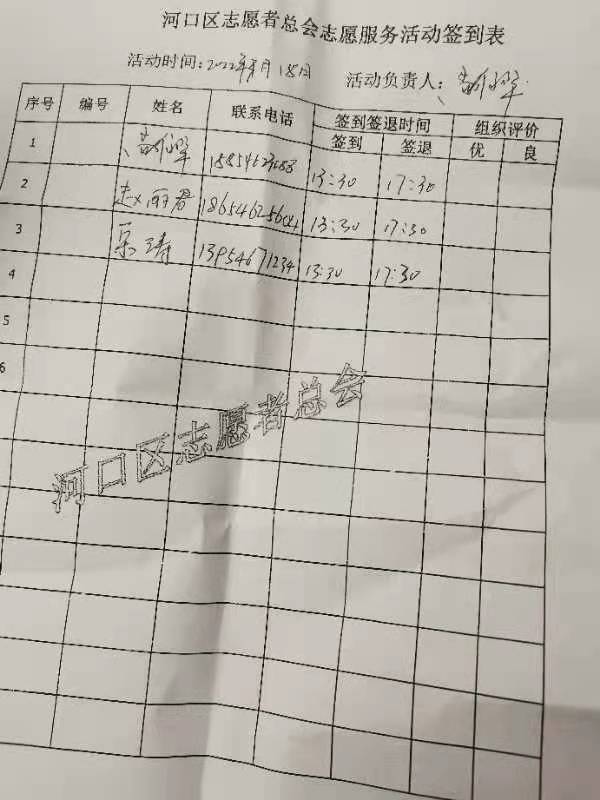 河口区志愿者总会志愿服务活动签到表
活动时间:2022年 月18日 活动负责人:
序号 编号 姓名 联系电话 签到签退时间 组织评价
签到 签退 优 良
1 13:30 17:30
2 赵雨君 13:30 17:30
3 涛 13954671234 13:30 17:30
4
5
6
河口区志愿者总会